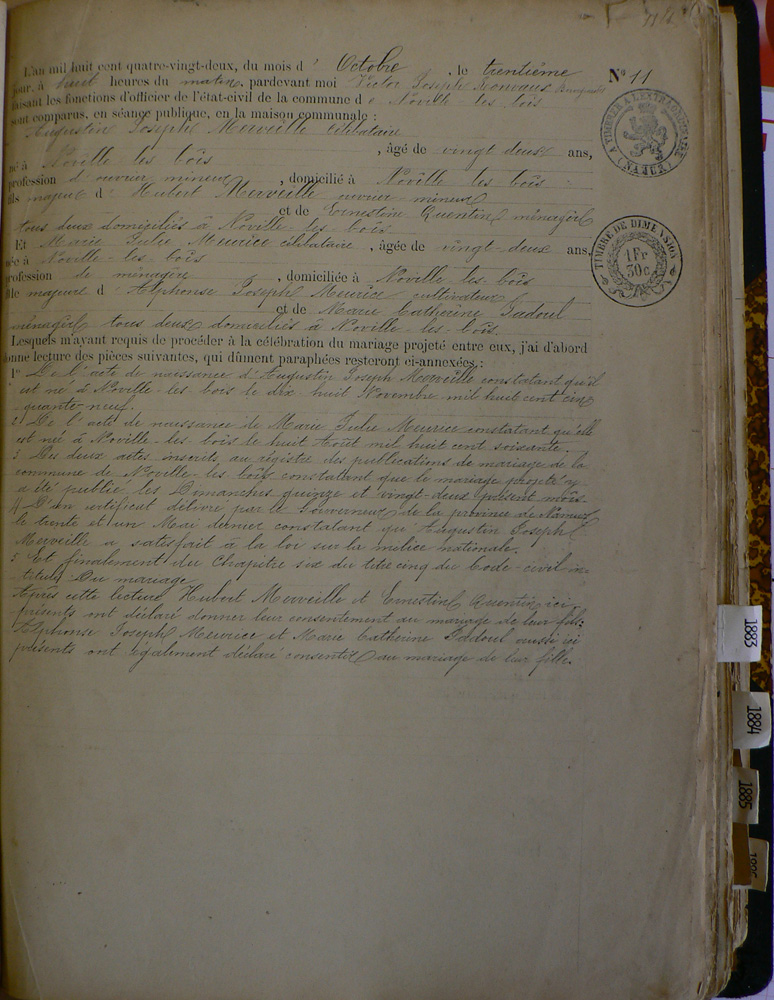 L'an mil huit cent quatre-vingt-deux, du mois d' Octobre, le trentième
jour, à huit heures du matin, pardevant moi Victor Joseph
faisant les fonctions d'officier de l'état-civil de la commune de Noville-les-bois
sont comparus, en séance publique, en la maison communale :
Augustin Joseph Merveille célibataire
, âgé de vingt deux ans,
né à Noville les bois
profession d'ouvrier mineur, domicilié à Noville les bois
fils majeur d' Hubert Merveille ouvrier mineur
et de Ernestine Quentin ménagère
tous deux domiciliés à Noville-les-bois
Et Marie Julie Meurice célibataire, âgée de vingt-deux ans,
née à Noville-les-bois
profession de ménagère, domiciliée à Noville les bois
fille majeure d' Alphonse Joseph Meurice cultivateur
et de Marie Catherine Sadoul
ménagère tous deux domiciliés à Noville-les-bois.
Lesquels m'ayant requis de procéder à la célébration du mariage projeté entre eux, j'ai d'abord
donné lecture des pièces suivantes, qui dûment paraphées resteront ci-annexées :
1° De l'acte de naissance d'Augustin Joseph Merveille constatant qu'il
est né à Noville-les-bois le dix huit Novembre mil huit cent cin-
quante-neuf.
2 De l'acte de naissance de Marie Julie Meurice constatant qu'elle
est née à Noville-les-bois le huit Août mil huit cent soixante.
3 Des deux actes inscrits au registre des publications de mariage de la
commune de Noville-les-bois constatant que le mariage projeté
a été publié les Dimanches quinze et vingt-deux présent mois.
4 D'un certificat délivré par le Gouverneur de la province de Namur
le trente et un Mai dernier constatant qu'Augustin Joseph
Merveille a satisfait à la loi sur la milice nationale.
5 Et finalement du Chapitre six du titre cinq du Code-civil in-
titulé Du mariage
Après cette lecture Hubert Merveille et Ernestine Quentin ici
présents ont déclaré donner leur consentement au mariage de leur fils;
Alphonse Joseph Meurice et Marie Catherine Sadoul aussi ici
présents ont également déclaré consentir au mariage de leur fille.
N° 11
A TIMBRER A L'EXTRAORDINAIRE
(NAMUR)
TIMBRE DE DIMENSION
1 Fr
30 c
1883
1884
1885